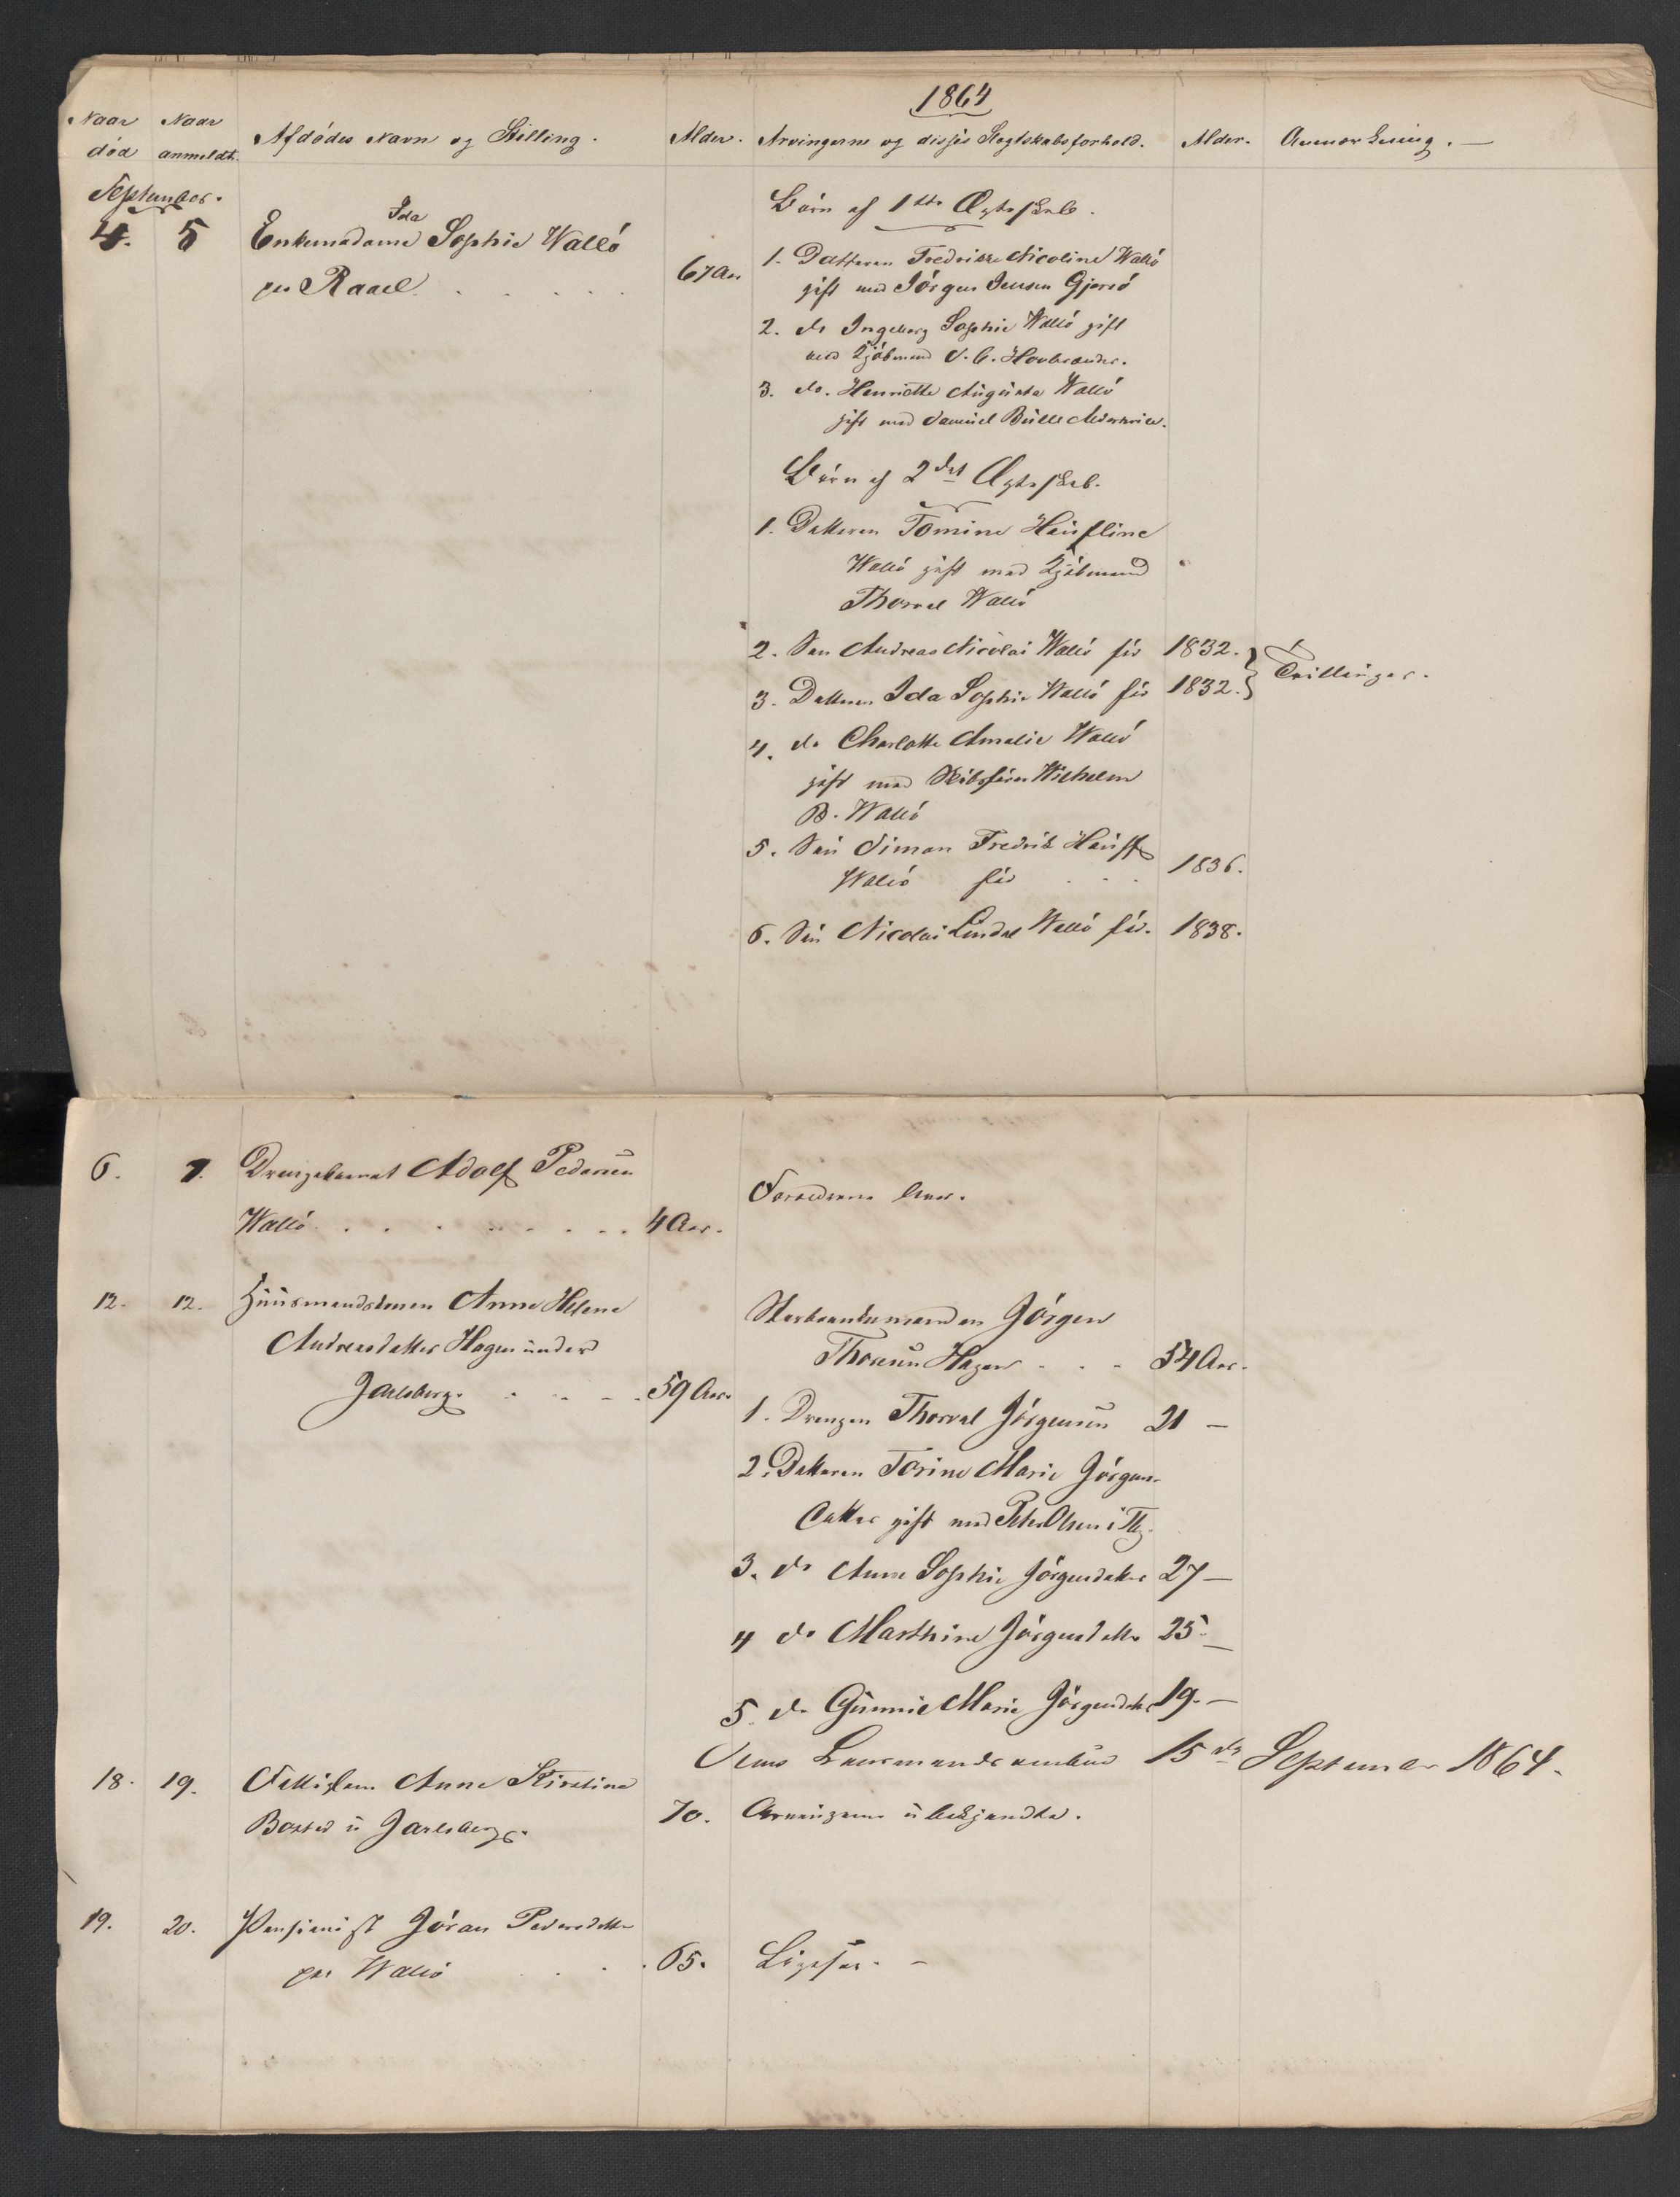 1864
Naar død
Naar anmeldt.
Afdødes Navn og Stilling.
Alder.
Arvingerne og disses Slegtskabsforhold.
Alder.
Anmærkning. —
September.
4. 5 Enkemadame Ida Sophie Walló
paa Raael . . . . . 67 Aar
Børn af 1ste Ægteskab.
1. Datteren Fredrikke Nicoline Walló
gift med Jörgen Jensen Gjersó
2. do Ingeborg Sophie Walló gift
med Kjöbmand
3. do. Henriette Augusta Walló
gift med Samuel Bülle
Børn af 2det Ægteskab.
1. Datteren Tomine Hauffline
Walló gift med Kjöbmand
Thorval Walló
2. Søn Andreas Nicolai Walló föd 1832.
3. Datteren Ida Sophie Walló föd 1832. } Tvillinger.
4. do Charlotte Amalie Walló
gift med Skibsfører Wilhelm
B. Walló
5. Søn Simon Fredrik Hauff
Walló föd . . . 1836.
6. Søn Nicolai Lindal Walló föd. 1838.
6. 7. Drengebarnet Adolf Pedersen
Walló . . . . . . . . 4 Aar.
Forældrene lever.
12. 12. Huusmandskonen Anne Helene
Andreasdatter Hagen under
Jarlsberg. . . . . 59 Aar.
Størboenkemanden Jörgen
Thoresen Hagen . . . 54 Aar.
1. Drengen Thorval Jörgensen 21 —
2. Datteren Torine Marie Jörgens-
datter gift med Peter Olsen i Tbg.
3. do Anne Sophie Jörgensdatter 27 —
4 do Marthine Jörgensdatter 25. —
5. do Gunnil Marie Jörgensdatter 19. —
Lensmandsombud 15de September 1864.
18. 19. Fattiglem Anne Kirstine
Bersted u Jarlsberg. 70. Arvingerne ubekjendte.
19. 20. Pensionist Jóran Pedersdatter
paa Walló . . . 65. Ligesaa. —